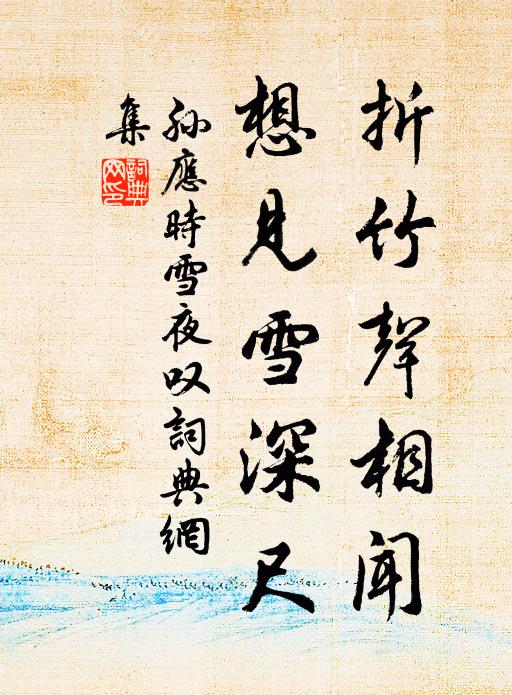 折竹聲相聞
想見雪深尺
孫應時雪夜叹詞典網
集
詞典網印